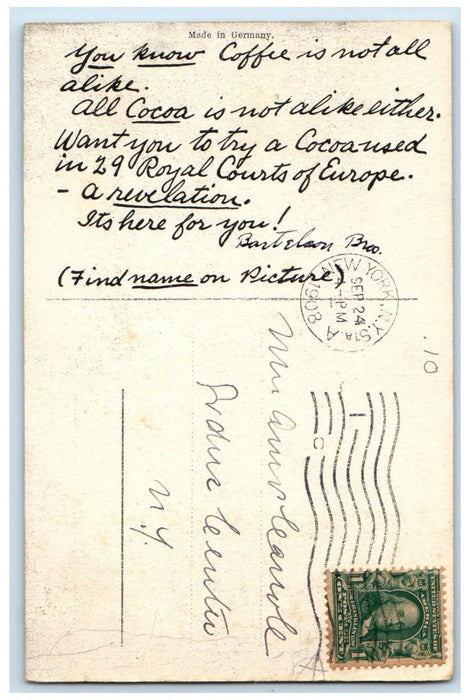 Made in Germany.
You know Coffee is not all
alike.
All Cocoa is not alike either.
Want you to try a Cocoa used
in 29 Royal Courts of Europe.
- a revelation.
Its here for you!
Bartelson Bros.
(Find name on Picture)
NEW YORK, N.Y. STA. A
SEP 24
PM
1908
.10
1
C
Center
N.Y.